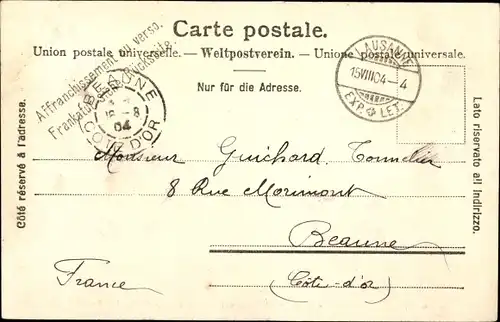 Carte postale.
Union postale universelle. — Weltpostverein. — Unione postale universale.
Nur für die Adresse.
Affranchissement au verso.
Frankatur Rückseite.
BEAUNE
16 - 8
04
COTE D'OR
LAUSANNE
15 VIII 04 - 4
EXP. LET.
Côté réservé à l'adresse.
Lato riservato all' indirizzo.
Monsieur Guichard Tonnelier
8 Rue Morimont
Beaune
France (Côte-d'or)